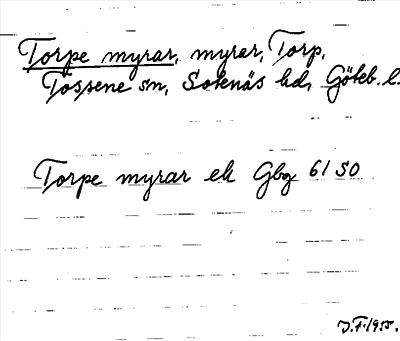 Torpe myrar, myrar, Torp,
Tossene sn, Sotenäs hd, Göteb. l.
Torpe myrar ek Gbg 61 SO
J.F. 1955.